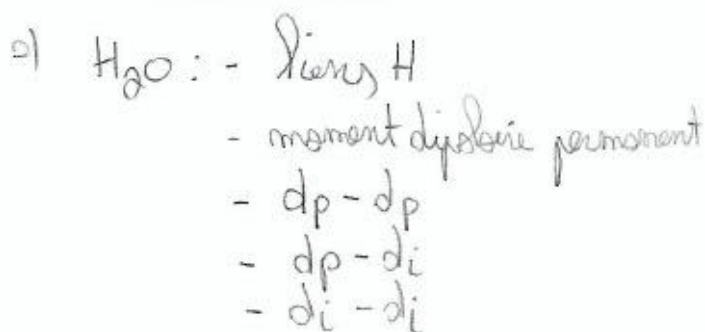 a) H₂O : - Liens H
- moment dipolaire permanent
- dp - dp
- dp - di
- di - di